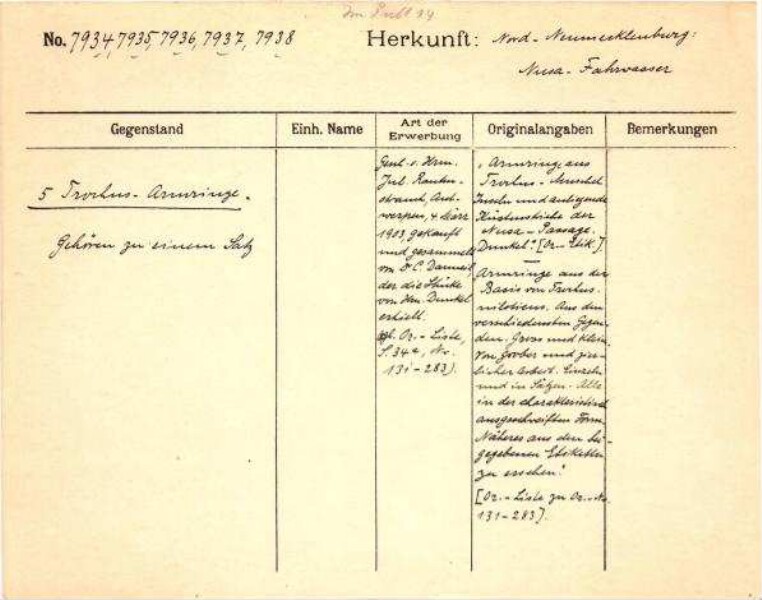 Im Pult 14
No. 7934, 7935, 7936, 7937, 7938
Herkunft: Nord-Neumecklenburg:
Nusa-Fahrwasser
Gegenstand
Einh. Name
Art der Erwerbung
Originalangaben
Bemerkungen
5 Trochus-Armringe.
Gehören zu einem Satz
Gesch. v. Hrn.
Jul. Rauten-
strauch, Ant-
werpen, 4. März
1903, gekauft
und gesammelt
von Dr C. Danneil,
der die Stücke
von Hrn. Dunkel
erhielt.
vgl. Or.-Liste,
S. 34a, No.
131-283).
„Armringe aus
Trochus-Muschel
Inseln und anliegende
Küstenstriche der
Nusa-Passage.
Dunkel." [Or-Etik.].
„Armringe aus der
Basis von Trochus
niloticus. Aus den
verschiedensten Gegen-
den. Gross und klein.
Von grober und zier-
licher Arbeit. Einzeln
und in Sätzen. Alle
in der charakteristisch
ausgeschweiften Form.
Näheres aus den bei-
gegebenen Etiketten
zu ersehen."
[Or.-Liste zu Or.-No.
131-283].